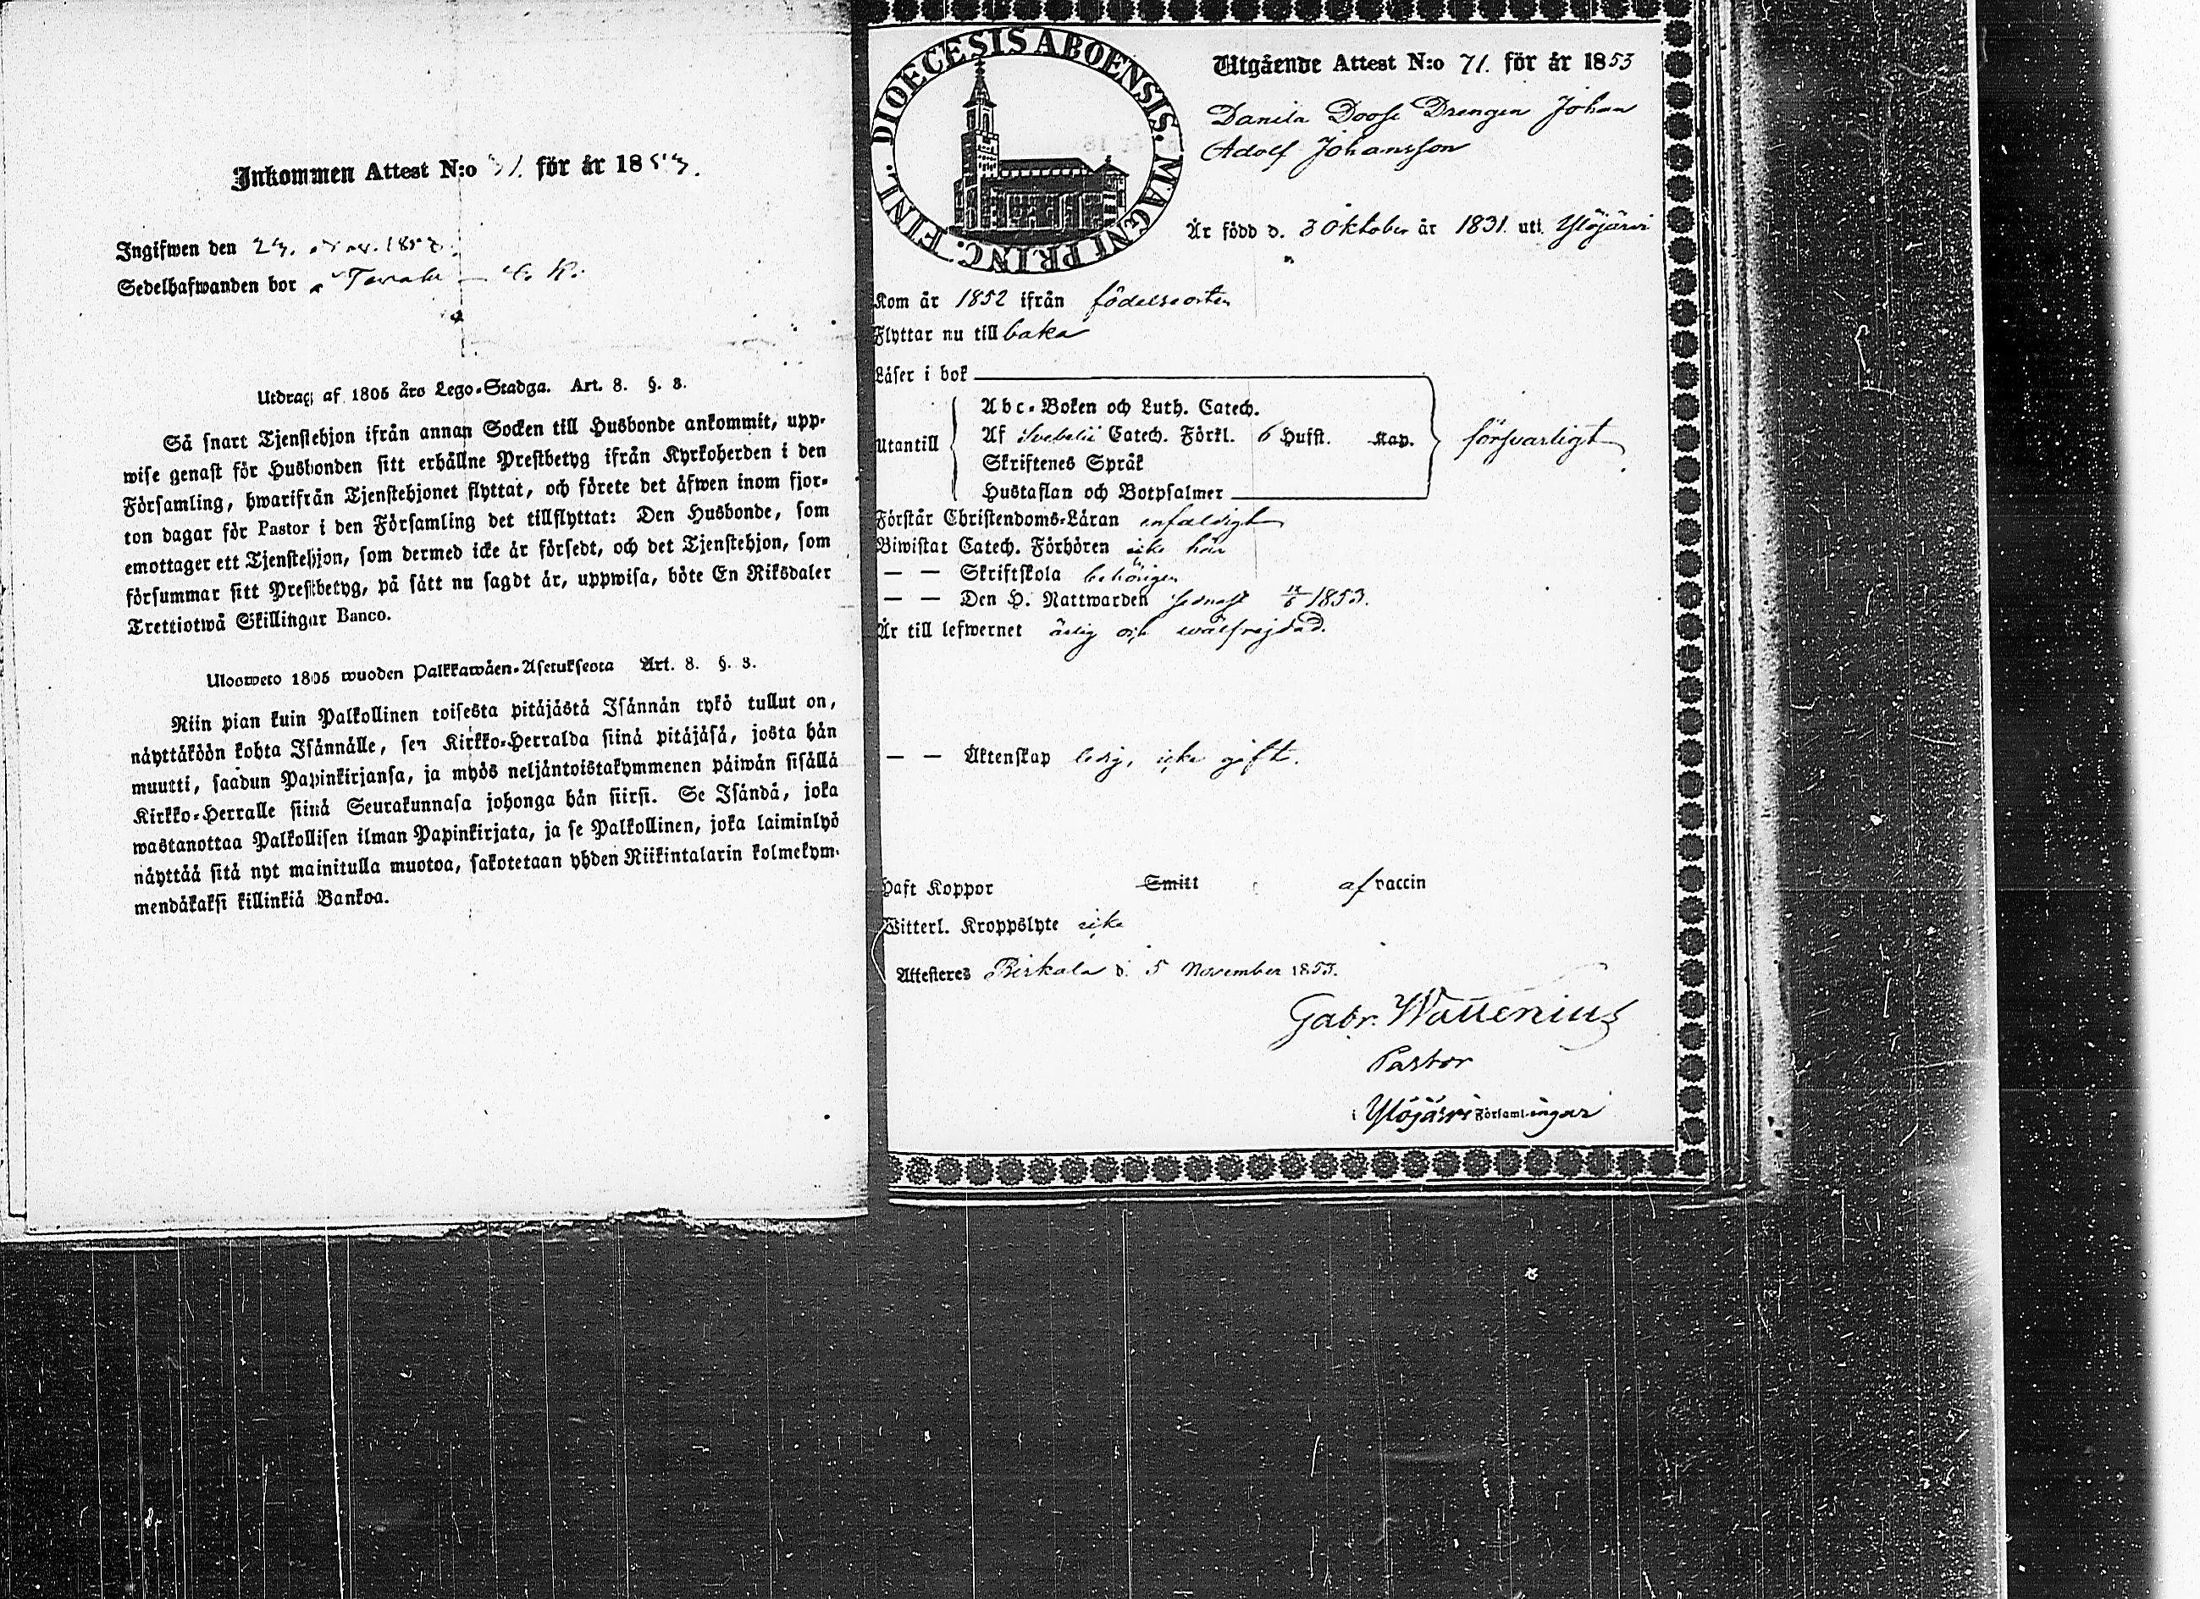 Inkommen Attest N:o 31. för år 1853.
Ingifwen den 24. Nov. 1853.
Sedelhafwanden bor
Utdrag af 1805 års Lego-Stadga. Art. 8. §. 3.
Så snart Tjenstehjon ifrån annan Socken till Husbonde ankommit, upp-
wise genast för Husbonden sitt erhållne Prestbetyg ifrån Kyrkoherden i den
Församling, hwarifrån Tjenstehjonet flyttat, och förete det äfwen inom fjor-
ton dagar för Pastor i den Församling det tillflyttat: Den Husbonde, som
emottager ett Tjenstehjon, som dermed icke är försedt, och det Tjenstehjon, som
försummar sitt Prestbetyg, på sätt nu sagdt är, uppwisa, böte En Riksdaler
Trettiotwå Skillingar Banco.
Ulosweto 1805 wuoden Palkkawäen-Asetuksesta Art. 8. §. 3.
Niin pian kuin Palkollinen toisesta pitäjästä Isännän tykö tullut on,
näyttäköön kohta Isännälle, sen Kirkko-Herralda siinä pitäjäsä, josta hän
muutti, saadun Papinkirjansa, ja myös neljäntoistakymmenen päiwän sisällä
Kirkko-Herralle siinä Seurakunnasa johonga hän siirsi. Se Isändä, joka
wastanottaa Palkollisen ilman Papinkirjata, ja se Palkollinen, joka laiminlyö
näyttää sitä nyt mainitulla muotoa, sakotetaan yhden Riikintalarin kolmekym-
mendäkaksi killinkiä Bankoa.
DIOECESIS ABOENSIS. MAGNI PRINC. FINL.
Utgående Attest N:o 71. för år 1853
Danila Doose Drengen Johan
Adolf Johansson
Är född d. 3 Oktober år 1831. uti Ylöjärvi
Kom år 1852 ifrån födelseorten
Flyttar nu till baka
Läser i bok
Utantill
Abc-Boken och Luth. Catech.
Af Svebelii Catech. Förkl. 6 Hufst. Kap.
Skriftenes Språk
Hustaflan och Botpsalmer
försvarligt
Förstår Christendoms-Läran enfaldigt
Biwistat Catech. Förhören icke här
— — Skriftskola behörigen
— — Den H. Nattwarden sednast 12/6 1853.
Är till lefwernet ärlig och wälfrejdad.
— — Äktenskap ledig, icke gift.
Haft Koppor Smitt af vaccin
Witterl. Kroppslyte icke
Attesteres Birkala d. 5 November 1853.
Gabr. Wallenius
Pastor
i Ylöjärvi Församlingar